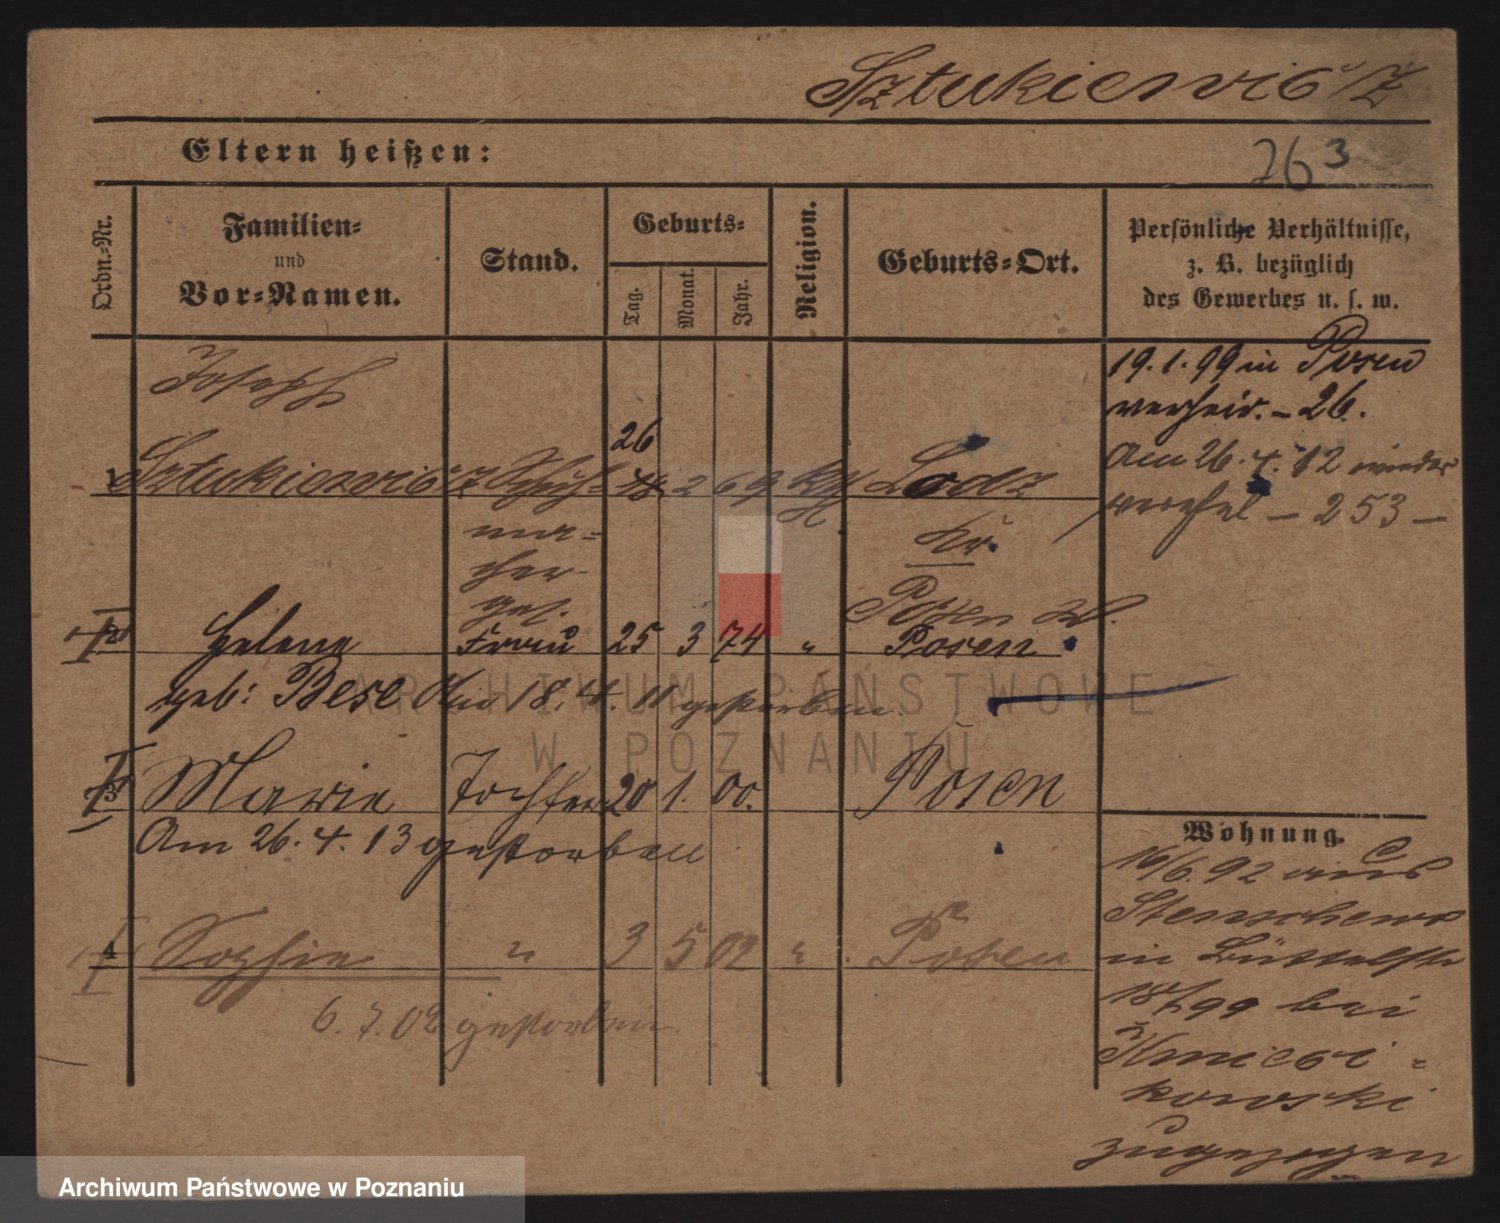 Sztukiewicz
Eltern heißen:
263
Ordn.-Nr.
Familien-
und
Vor-Namen.
Stand.
Geburts-
Tag.
Monat.
Jahr.
Religion.
Geburts-Ort.
Persönliche Verhältnisse,
z. B. bezüglich
des Gewerbes u. s. w.
Joseph
19.1.99 in Posen
verheir. - 26.
26
1 Sztukiewicz Schuh- 18 2 69 kth. Lodz
Am 26.4.12 wieder
verehel - 253 -
ma-
cher
ges.
Kr.
Posen W.
2 Helene Frau 25 3 74 " Posen
geb: Bese Am 18.4.11 gestorben.
3 Marie Tochter 20 1. 00. Posen
Am 26.4.13 gestorben
4 Sophie " 3 5 02 " Posen
6.7.02 gestorben.
Wohnung.
16/6.92 aus
Stenschewo
in Büttelstr
99 bei
kowski
zugezogen
ARCHIWUM PAŃSTWOWE
W POZNANIU
Archiwum Państwowe w Poznaniu